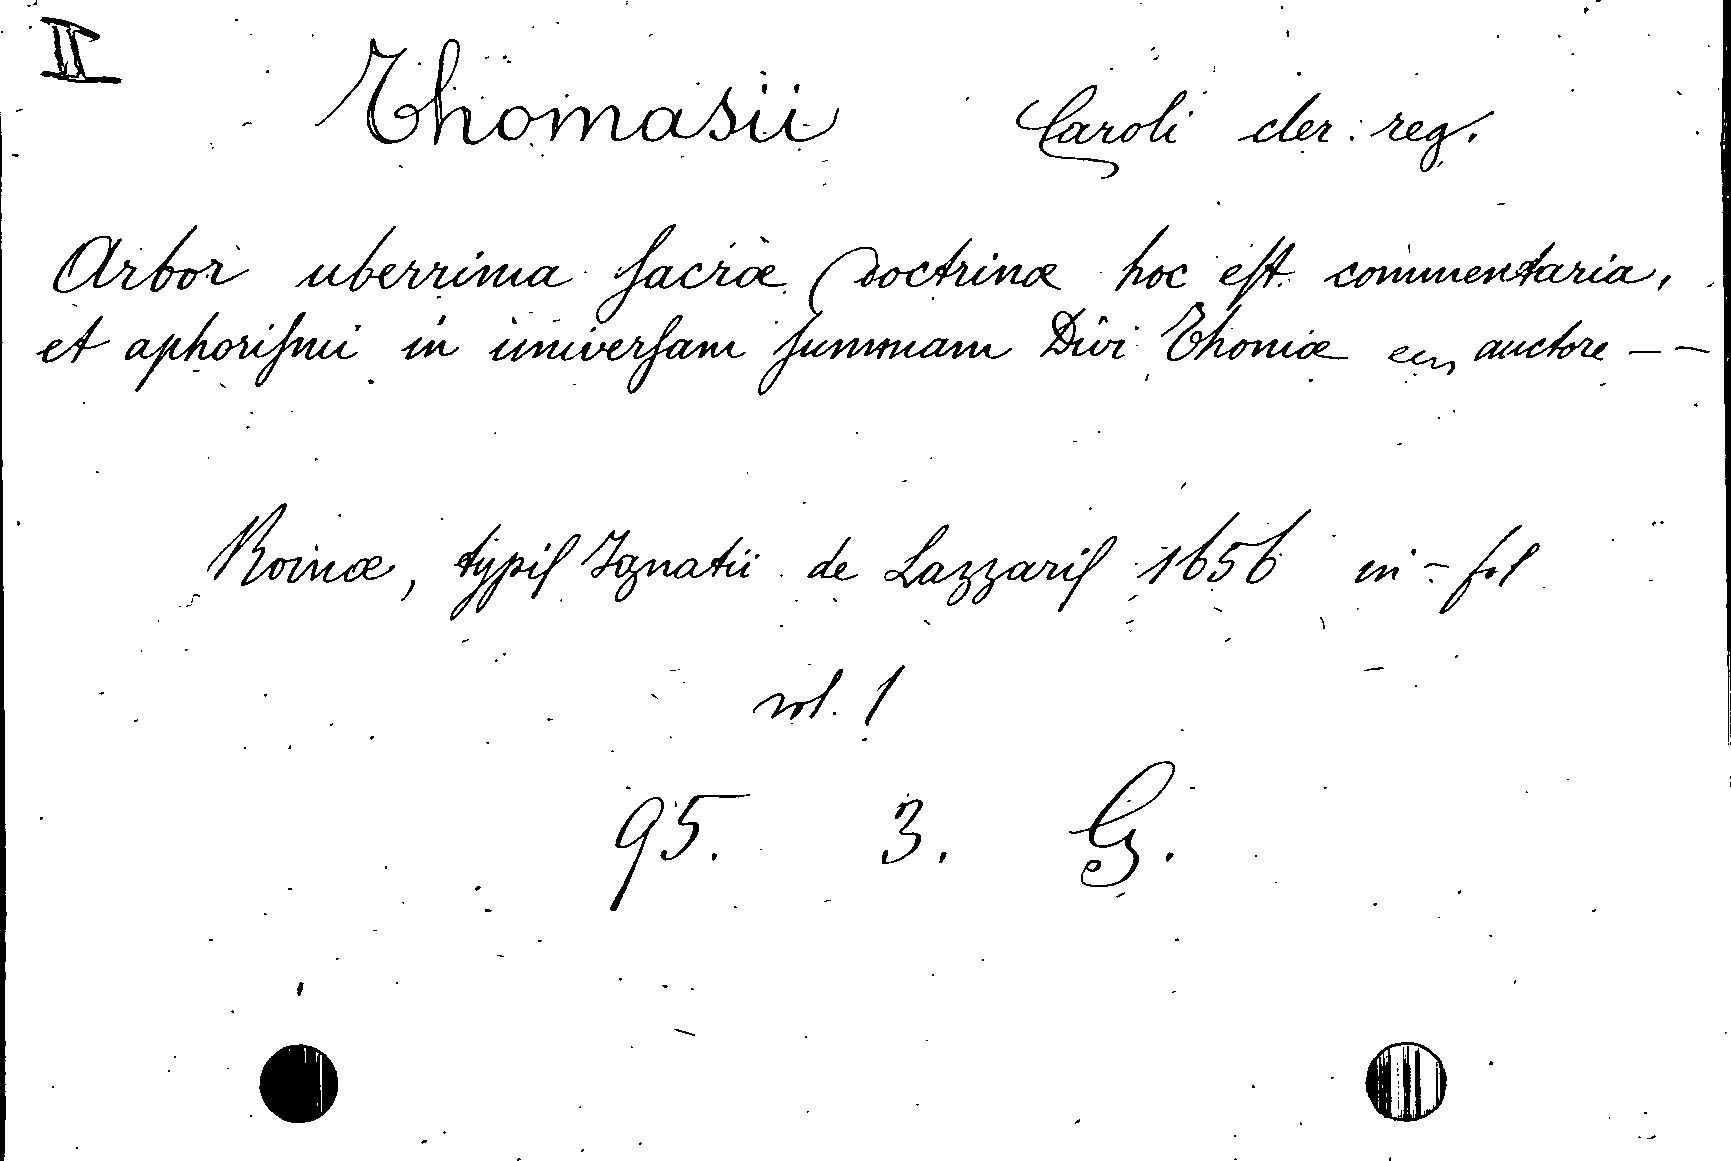 II
Thomasii Caroli cler. reg.
Arbor uberrima sacræ Doctrinæ hoc est commentaria,
et aphorismi in universam summam Divi Thomæ auctore --
Romæ, typis Ignatii de Lazzaris 1656 in-fol
vol. 1
95. 3. G.